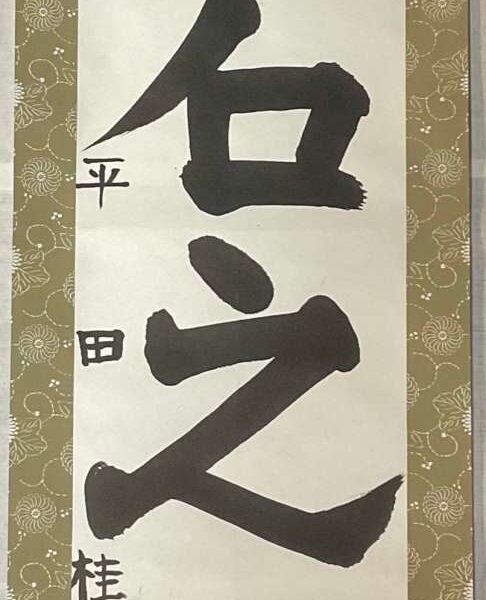 之
平田桂